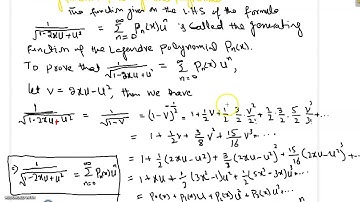 The function given in the L.H.S of the formula
1/√(1-2xu+u²) = ∑_{n=0}^{∞} Pₙ(x)uⁿ is called the generating
function of the Legendre Polynomial Pₙ(x).
To prove that 1/√(1-2xu+u²) = ∑_{n=0}^{∞} Pₙ(x)uⁿ,
let v = 2xu-u², then we have
1/√(1-2xu+u²) = 1/√(1-v) = (1-v)^{-1/2} = 1+½v+½·3/2·v²/2+½·3/2·5/2·v³/3!+...
= 1+½v+3/8 v²+15/16 v³+...
= 1+½(2xu-u²)+3/8(2xu-u²)²+15/16(2xu-u²)³+...
⇒ 1/√(1-2xu+u²) = ∑_{n=0}^{∞} Pₙ(x)uⁿ
= 1+xu+½(3x²-1)u²+½(5x³-3x)u³+...
= P₀(x)+P₁(x)u+P₂(x)u²+P₃(x)u³+...